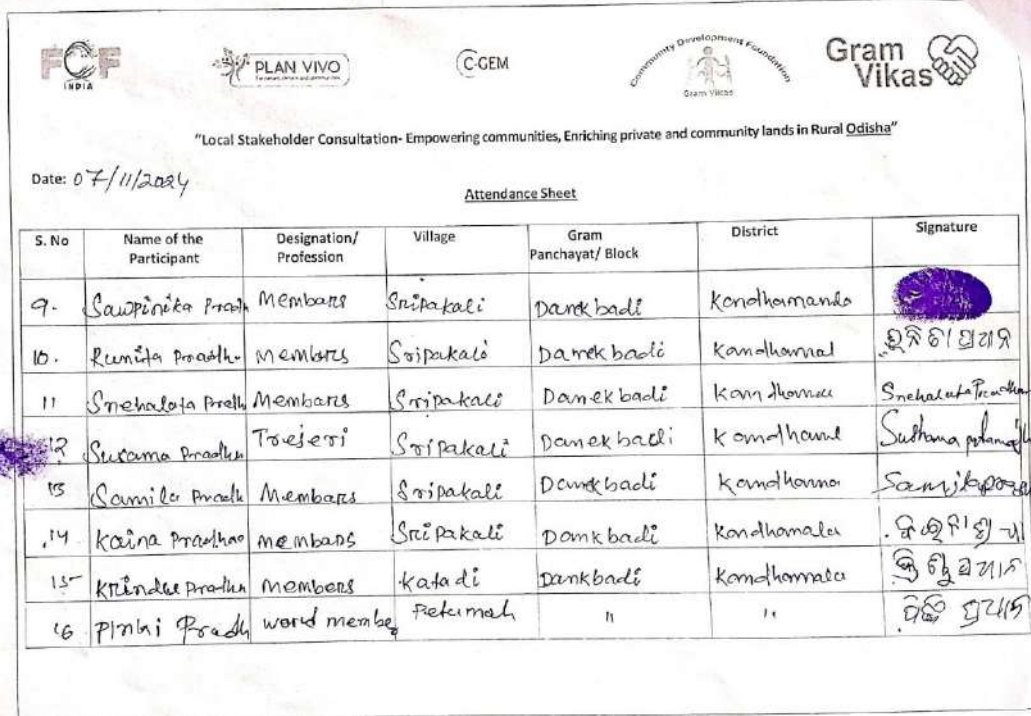 FCF
INDIA
PLAN VIVO
C-GEM
Community Development Foundation
Gram Vikas
Gram
Vikas
"Local Stakeholder Consultation- Empowering communities, Enriching private and community lands in Rural Odisha"
Date: 07/11/2024
Attendance Sheet
S. No Name of the Participant Designation/ Profession Village Gram Panchayat/ Block District Signature
9. Pradh Membars Sripakali Danekbadi Kondhamando
10. Runita Pradh- Membors Sripakali Danekbadi Kandhamal
11 Snehalata Pradh Membars Sripakali Danekbadi Kandhamal Snehalata Pradhan
12 Susama Pradhn Trejeri Sripakali Danekbadi Kamdhaml Sushama
13 Samila Pradh Membars Sripakali Danekbadi Kamdhamna
14 Kaina Pradhan membars Sripakali Domkbadi Kandhamala
15 Pradhn members Katadi Dankbadi Kamdhamala
16 Pinki Pradh word membe " "